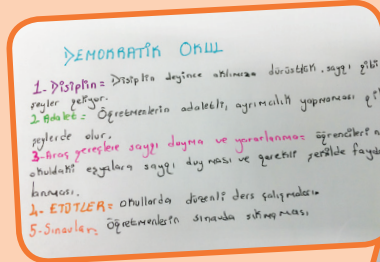 DEMOKRATİK OKUL
1- Disiplin = Disiplin deyince aklımıza dürüstlük, saygı gibi
şeyler geliyor.
2. Adalet = Öğretmenlerin adaletli, ayrımcılık yapmaması
şeylerde olur.
3- Araç gereçlere saygı duyma ve yararlanma = öğrencileri
okuldaki eşyalara saygı duyması ve gerekli şekilde
lanması.
4- ETÜTLER = okullarda düzenli ders çalışmaları.
5- Sınavlar = Öğretmenlerin sınavda sıkmaması.